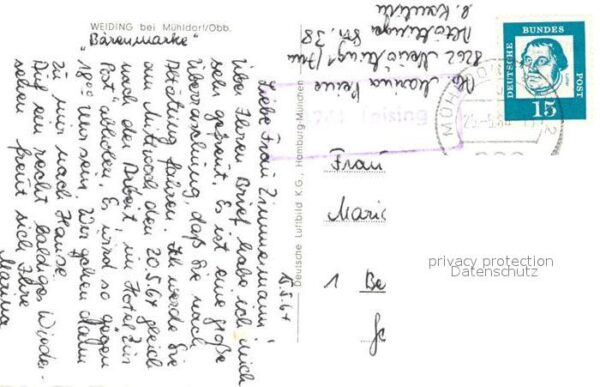 WEIDING bei Mühldorf/Obb.
"Bärenmarke"
15.5.64
Liebe Frau Zimmermann!
Über Ihren Brief habe ich mich
sehr gefreut. Es ist eine große
Überraschung, daß Sie nach
Altötting fahren. Ich werde Sie
am Mittwoch den 20.5.64 gleich
nach der Arbeit, im Hotel "Zur
Post" abholen. Es wird so gegen
18°° Uhr sein. Wir gehen dann
zu mir nach Hause.
Auf ein recht baldiges Wieder-
sehen freut sich Ihre
Marina
Deutsche Luftbild K.G., Hamburg-München
Abs. Marina
8262 Neuötting/Inn
Altöttinger Str. 38
DEUTSCHE
BUNDES
POST
15
MÜHLDORF
Frau
Maric
1 Be
privacy protection
Datenschutz